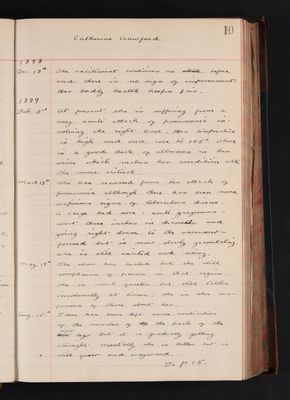 10
Catherine Crawford
1898
Dec. 13th The excitement continues as before
and there is no sign of improvement.
Her bodily health keeps fair.
1899
Feb. 3rd At present she is suffering from a
very acute attack of pneumonia in-
volving the right base. Her temperature
is high and once rose to 105°. There
is a good deal of albumen in her
urine which makes her condition all
the more critical.
March 13th She has recovered from her attack of
pneumonia although there has been some
suspicious signs of tubercular disease.
A large bed sore - quite gangrenous -
about three inches in and
going right down to the sacrum
formed but is now slowly granulating.
She is still excited and noisy.
May 19th The sore has healed but she still
complains of pain in that region.
She is much quieter but still talks
incoherently at times, she is also sus-
picious of those about her.
Aug. 10th There has been left some contraction
of the muscles of the back of the
right leg but it is gradually getting
straight. Mentally she is better but is
still queer and wayward.
To p. 15.